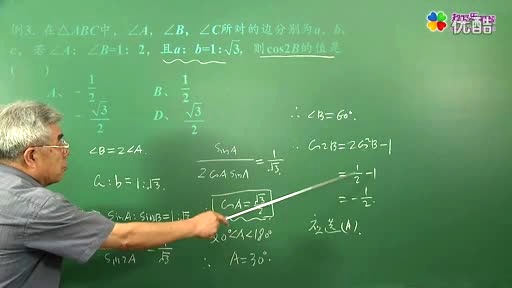 优酷
例3. 在△ABC中，∠A，∠B，∠C所对的边分别为a、b、
c，若∠A：∠B=1：2，且a：b=1:√3，则cos2B的值是
（ ）
A、-1/2 B、1/2
C、-√3/2 D、√3/2
∠B=2∠A.
a:b=1:√3.
SinA:SinB=1:√3
Sin2A = 1/√3
SinA/2CosASinA = 1/√3.
CosA=√3/2
0°<A<180°
∴ A=30°.
∴ ∠B=60°.
∴ Cos2B=2Cos²B-1
=1/2-1
=-1/2.
∴选(A).